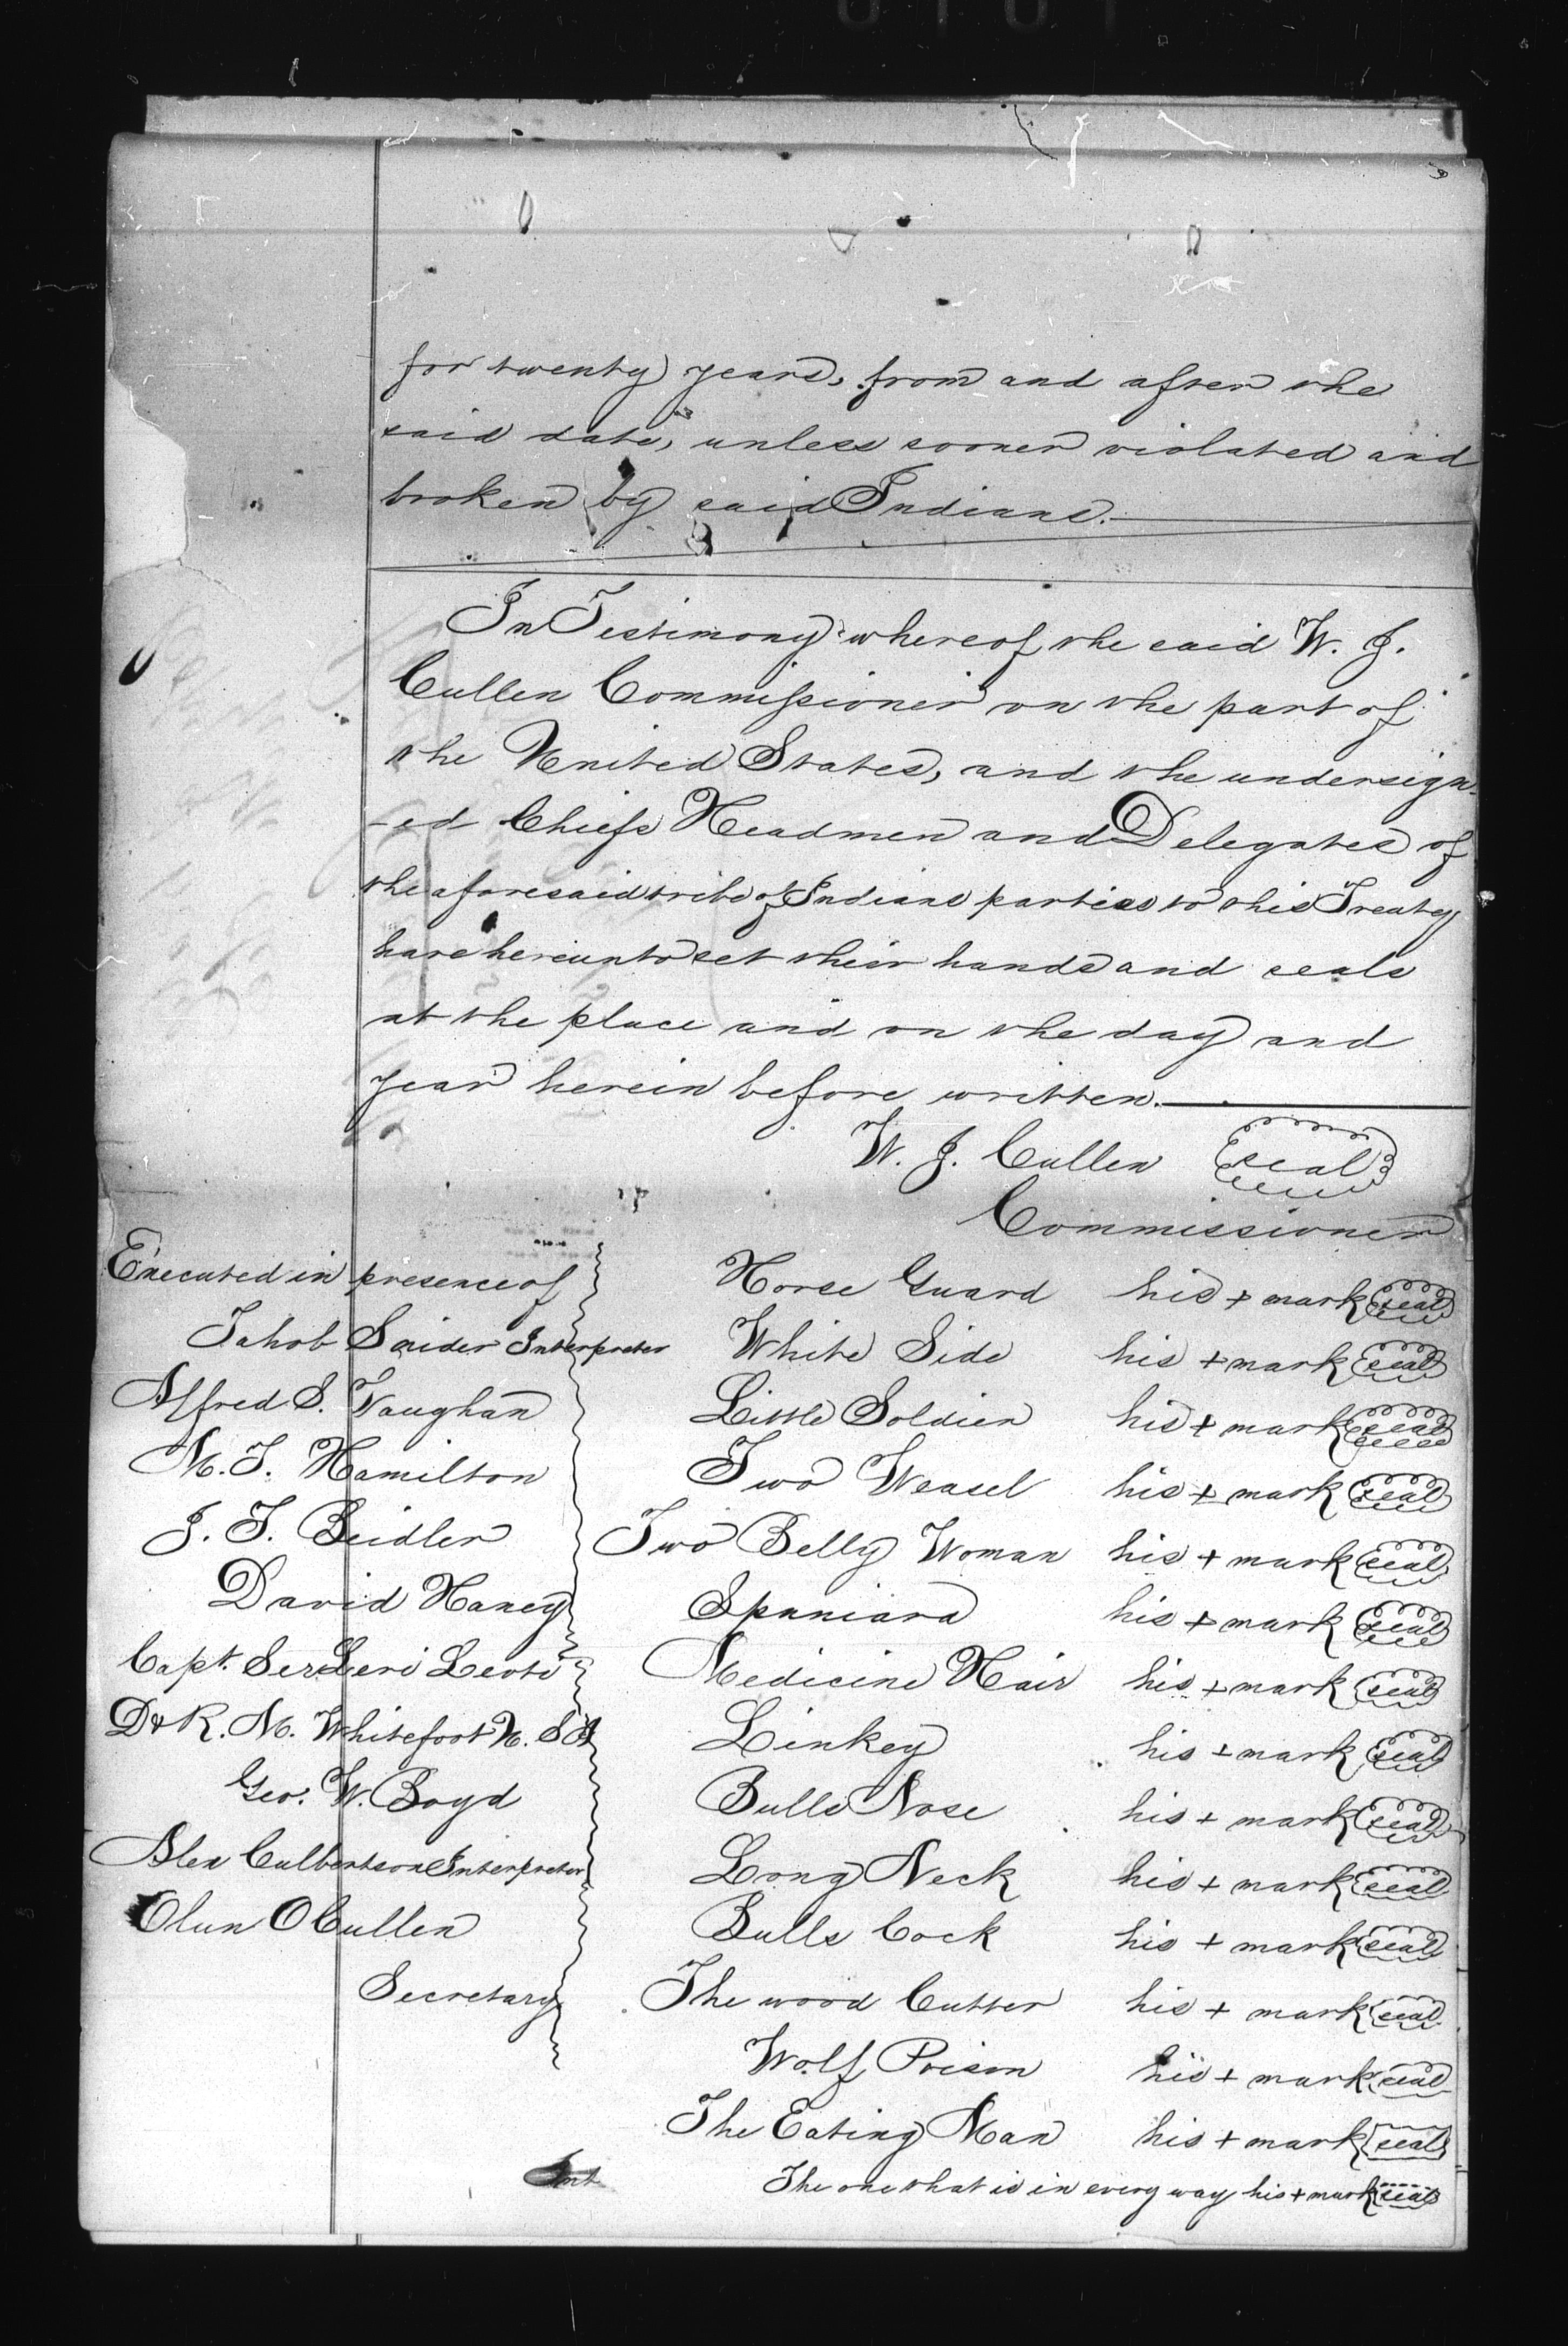 for twenty years, from and after the
said date, unless sooner violated and
broken by said Indians.
In Testimony whereof the said W. J.
Cullen Commissioner on the part of
the United States, and the undersign-
-ed Chiefs Headmen and Delegates of
the aforesaid tribe of Indians parties to this Treaty
have hereunto set their hands and seals
at the place and on the day and
year herein before written.
W. J. Cullen seal
Commissioner
Executed in presence of
Jahob Snider Interpreter
Alfred S. Vaughan
M. T. Hamilton
J. T. Beidler
David Haney
Capt.
Dr R. M. Whitefoot U. S. A
Geo. W. Boyd
Alex Culbertson Interpreter
Olun O Cullen
Secretary
Horse Guard his + mark seal
White Side his + mark seal
Little Soldier his + mark seal
Two Weasel his + mark seal
Two Belly Woman his + mark seal
Spaniard his + mark seal
Medicine Hair his + mark seal
Linkey his + mark seal
Bulls Nose his + mark seal
Long Neck his + mark seal
Bulls Cock his + mark seal
The wood Cutter his + mark seal
Wolf Prison his + mark seal
The Eating Man his + mark seal
The one that is in every way his + mark seal